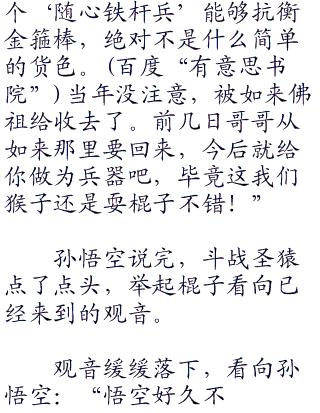 个‘随心铁杆兵’能够抗衡
金箍棒，绝对不是什么简单
的货色。(百度“有意思书
院”)当年没注意，被如来佛
祖给收去了。前几日哥哥从
如来那里要回来，今后就给
你做为兵器吧，毕竟这我们
猴子还是耍棍子不错！”
孙悟空说完，斗战圣猿
点了点头，举起棍子看向已
经来到的观音。
观音缓缓落下，看向孙
悟空：“悟空好久不